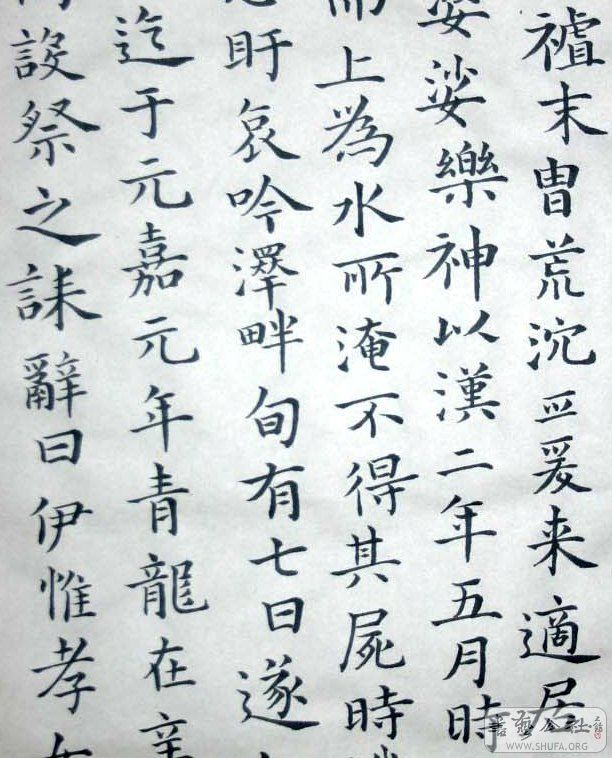 末冑荒沉爰来適居
婆娑樂神以漢二年五月時
而上為水所淹不得其屍時
盱哀吟澤畔旬有七日遂
迄于元嘉元年青龍在辛
設祭之誄辭曰伊惟孝女
WWW.SHUFA.ORG